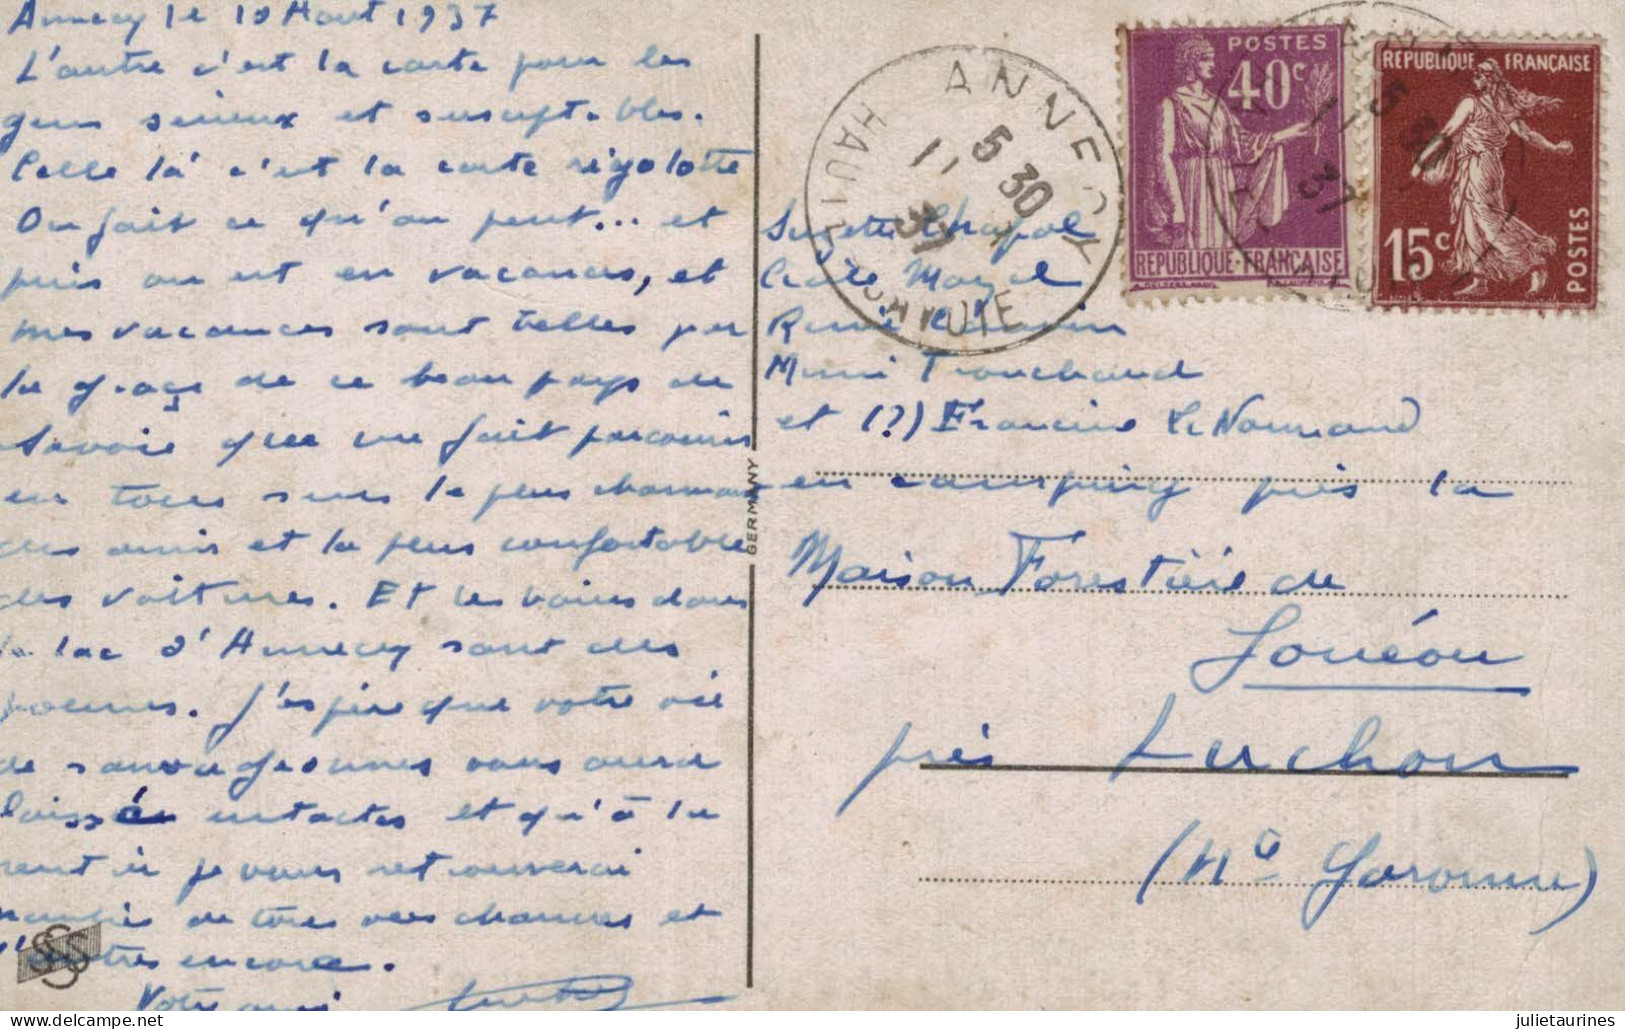 Annecy le 10 Aout 1937
L'autre c'est la carte pour les
gens sérieux et susceptibles.
Celle là c'est la carte rigolotte
On fait ce qu'on peut... et
puis on est en vacances, et
mes vacances sont telles par
la grace de ce beau pays de
Savoie que me fait parcourir
en tous sens le plus charmant
des amis et la plus confortable
des voitures. Et les bains dans
le lac d'Annecy sont des
poemes. J'espère que votre vie
de sauvageonnes vous aura
laissées intactes et qu'à la
rentrée je vous retrouverai
de vos charmes et
d'autres encore.
Votre ami
GERMANY
SSS
ANNECY
HAUTE-SAVOIE
5 30
11
37
POSTES
40c
REPUBLIQUE-FRANÇAISE
REPUBLIQUE FRANÇAISE
15c
POSTES
Suzette Chapal
Mazel
Renée
Mimi Trouchaud
et (?) Francine Le Normand
en camping près la
Maison Forestière de
Jouéou
près Luchon
(Hte Garonne)
julietaurines